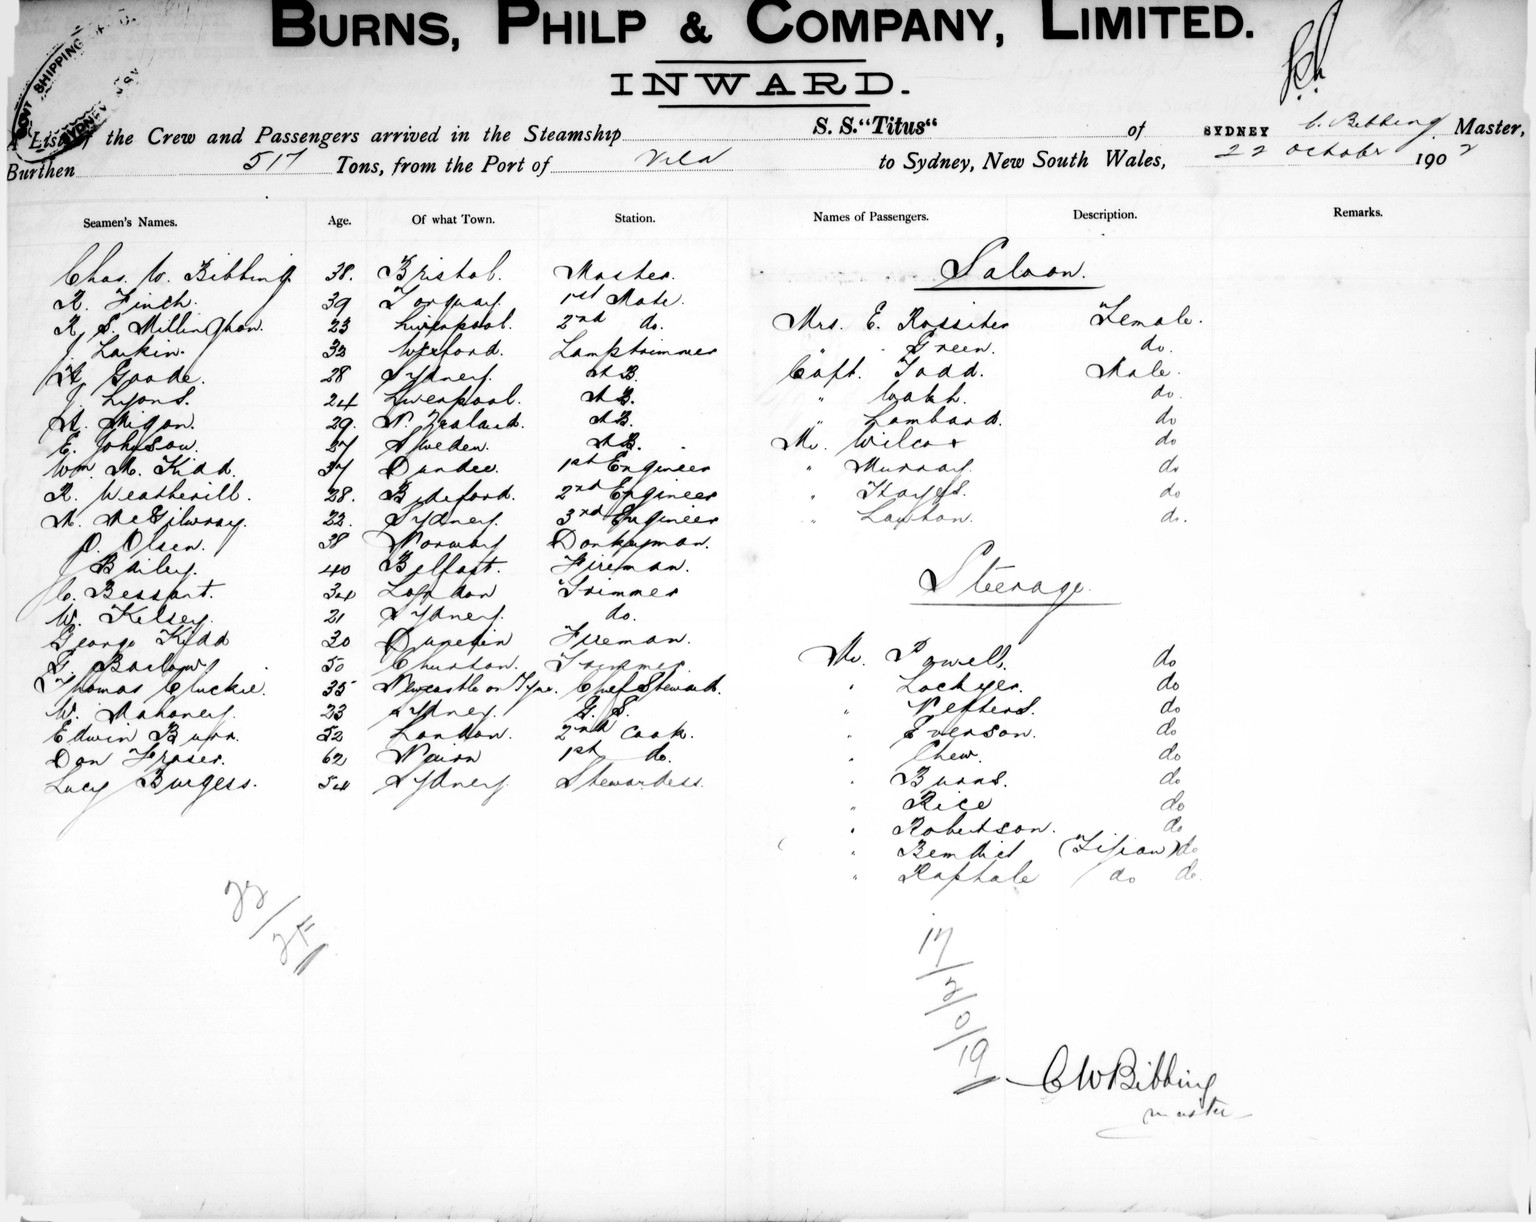 BURNS, PHILP & COMPANY, LIMITED.
INWARD.
SHIPPING
SYDNEY
A List of the Crew and Passengers arrived in the Steamship S. S. "Titus" of SYDNEY C. Bibbing Master,
Burthen 517 Tons, from the Port of Vila to Sydney, New South Wales, 22 October 1902
Seamen's Names. Age. Of what Town. Station. Names of Passengers. Description. Remarks.
Chas. W. Bibbing 38. Bristol. Master.
R. Finch. 39 Torquay. 1st Mate.
R. S. Millington. 23 Liverpool. 2nd do.
J. Larkin. 32 Wexford. Lamptrimmer
H. Goode. 28 Sydney. A B.
J. Lyons. 24 Liverpool. A B.
29. N. Zealand. A B.
E. Johnson. 27 Sweden. A B.
Wm. M. Kidd. 37 Dundee. 1st Engineer
R. Weatherill. 28. Bideford. 2nd Engineer
A. McGilvray. 22. Sydney. 3rd Engineer
O. Olsen. 38 Norway Donkeyman.
J. Bailey. 40 Belfast. Fireman.
C. Bessant. 34 London Trimmer
W. Kelsey. 21 Sydney. do.
George Kidd 30 Dunedin Fireman.
G. Barlow. 50 Trimmer.
Thomas Cluckie. 35 Newcastle on Tyne. Chief Steward.
W. Mahoney. 23 Sydney. G. S.
Edwin Burn. 52 London. 2nd Cook.
Dan Fraser. 62 Nairn 1st do.
Lucy Burgess. 54 Sydney. Stewardess.
22/
Saloon.
Mrs. E. Rossiter Female.
" Green. do.
Capt. Todd. Male.
" do.
" Lombard. do
Mr. Wilcox do
" Murray. do
" Hayes. do
" Lawson. do.
Steerage.
Mr. Powell. do
" Lockyer. do
" do
" Everson. do
" Chew. do
" Burns. do
" Rice do
" Robertson. do
" Benedict (Fijian) do
" Raphale do do.
17/2/0/19
C W Bibbing
master